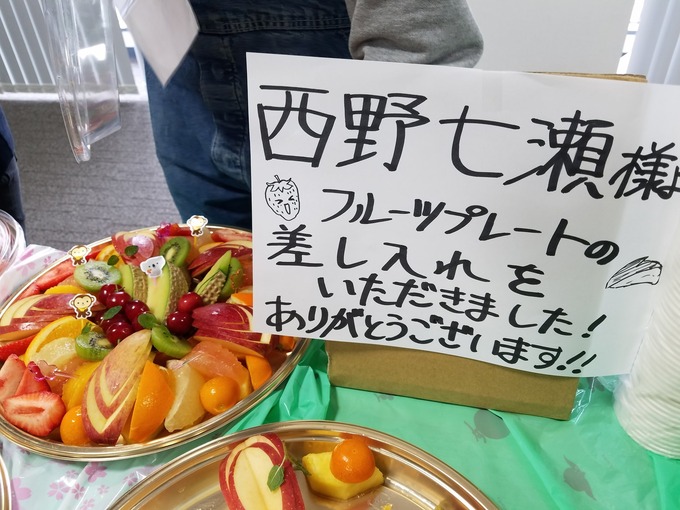 西野七瀬様よ
フルーツプレートの
差し入れを
いただきました!
ありがとうございます!!